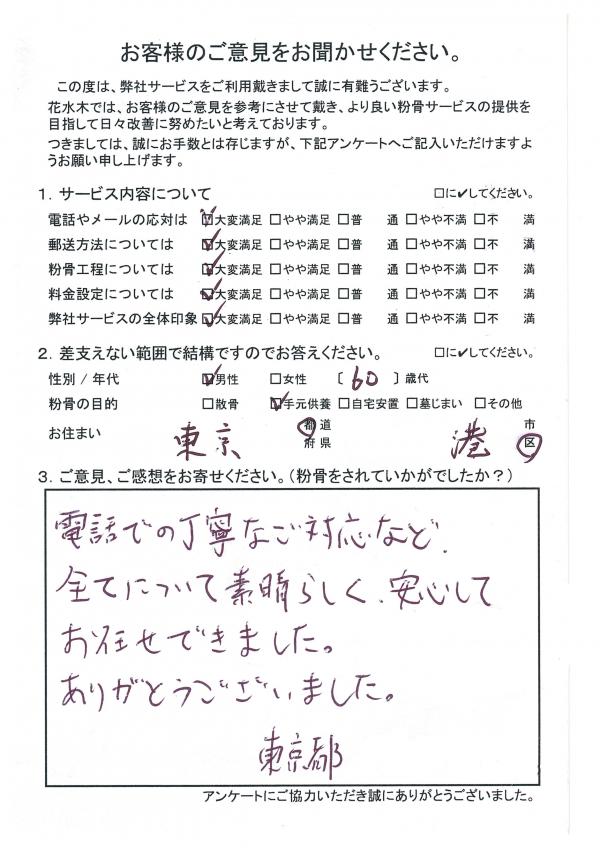 お客様のご意見をお聞かせください。
この度は、弊社サービスをご利用戴きまして誠に有難うございます。
花水木では、お客様のご意見を参考にさせて戴き、より良い粉骨サービスの提供を
目指して日々改善に努めたいと考えております。
つきましては、誠にお手数とは存じますが、下記アンケートへご記入いただけますよ
うお願い申し上げます。
1．サービス内容について □に✔してください。
電話やメールの応対は ☑大変満足 □やや満足 □普 通 □やや不満 □不 満
郵送方法については ☑大変満足 □やや満足 □普 通 □やや不満 □不 満
粉骨工程については ☑大変満足 □やや満足 □普 通 □やや不満 □不 満
料金設定については ☑大変満足 □やや満足 □普 通 □やや不満 □不 満
弊社サービスの全体印象 ☑大変満足 □やや満足 □普 通 □やや不満 □不 満
2．差支えない範囲で結構ですのでお答えください。 □に✔してください。
性別 / 年代 ☑男性 □女性 〔 60 〕歳代
粉骨の目的 □散骨 ☑手元供養 □自宅安置 □墓じまい □その他
お住まい 東京 都道府県 港 市区
3．ご意見、ご感想をお寄せください。（粉骨をされていかがでしたか？）
電話での丁寧なご対応など、
全てについて素晴らしく、安心して
お任せできました。
ありがとうございました。
東京都
アンケートにご協力いただき誠にありがとうございました。